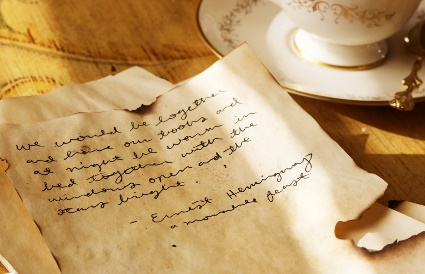 we would be together
and have our books and
at night be warm in
bed together with the
windows open and the
stars bright.
- Ernest Hemingway
a moveable feast